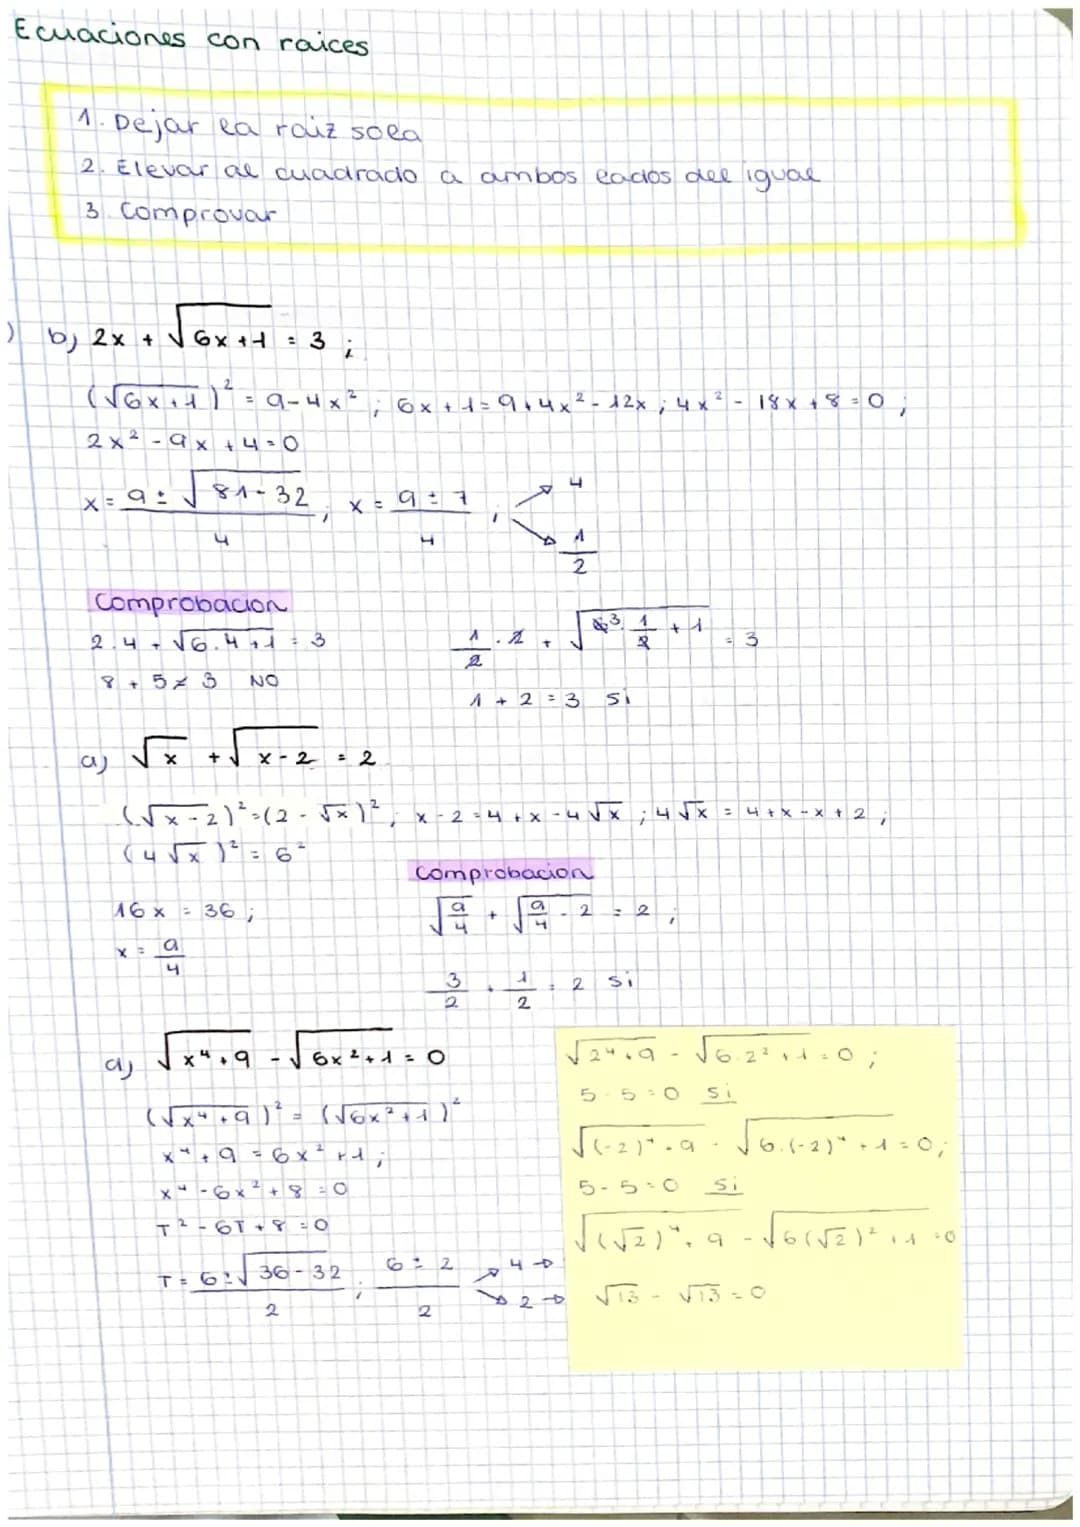 Ecuaciones con raices
1. Dejar la raiz sola
2. Elevar al cuadrado a ambos lados del igual
3 Comprovar
) b) 2x + √(6x+1) = 3 ;
(√(6x+1))² = 9-4x² ; 6x+1=9+4x²-12x ; 4x²-18x+8=0 ;
2x²-9x+4=0
x = (9 ± √(81-32))/4 ; x = (9 ± 7)/4 ; → 4 → 1/2
Comprobacion
2.4 + √(6.4+1) = 3
8 + 5 ≠ 3 NO
1/2 · 2 + √(6 3 · 1/2 + 1) = 3
1 + 2 = 3 Si
a) √x + √(x-2) = 2
(√(x-2))² = (2-√x)² ; x-2=4+x-4√x ; 4√x = 4+x-x+2 ;
(4√x)² = 6²
16x = 36 ;
x = 9/4
Comprobacion
√(9/4) + √(9/4 - 2) = 2 ;
3/2 + 1/2 = 2 Si
d) √(x⁴+9) - √(6x²+1) = 0
(√(x⁴+9))² = (√(6x²+1))²
x⁴+9 = 6x²+1 ;
x⁴-6x²+8=0
T²-6T+8=0
T = (6±√(36-32))/2 ; (6±2)/2 → 4 → → 2 →
√(2⁴+9) - √(6.2²+1) = 0 ;
5-5=0 Si
√((-2)⁴+9) - √(6.(-2)⁴+1) = 0 ;
5-5=0 Si
√((√2)⁴+9) - √(6(√2)²+1) = 0
√13 - √13 = 0